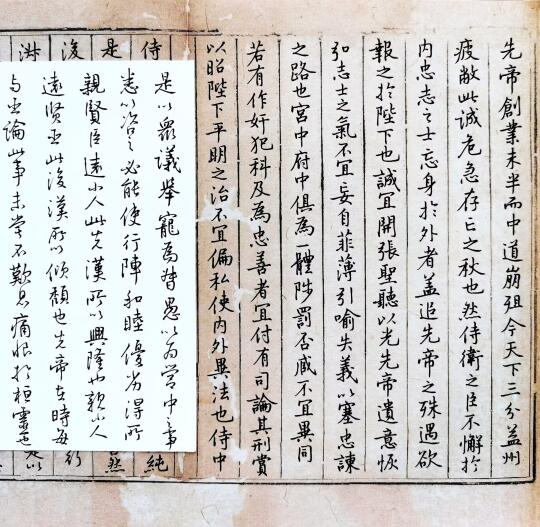 先帝創業未半而中道崩殂今天下三分益州
疲敝此誠危急存亡之秋也然侍衛之臣不懈於
內忠志之士忘身於外者蓋追先帝之殊遇欲
報之於陛下也誠宜開張聖聽以光先帝遺意恢
弘志士之氣不宜妄自菲薄引喻失義以塞忠諫
之路也宮中府中俱為一體陟罰否臧不宜異同
若有作奸犯科及為忠善者宜付有司論其刑賞
以昭陛下平明之治不宜偏私使內外異法也侍中
侍 純
是 然
後 行
是以
是以眾議舉寵為督愚以為營中事
悉以咨之必能使行陣和睦優劣得所
親賢臣遠小人此先漢所以興隆也親小人
遠賢臣此後漢所以傾頹也先帝在時每
与臣論此事未嘗不歎息痛恨於桓靈也